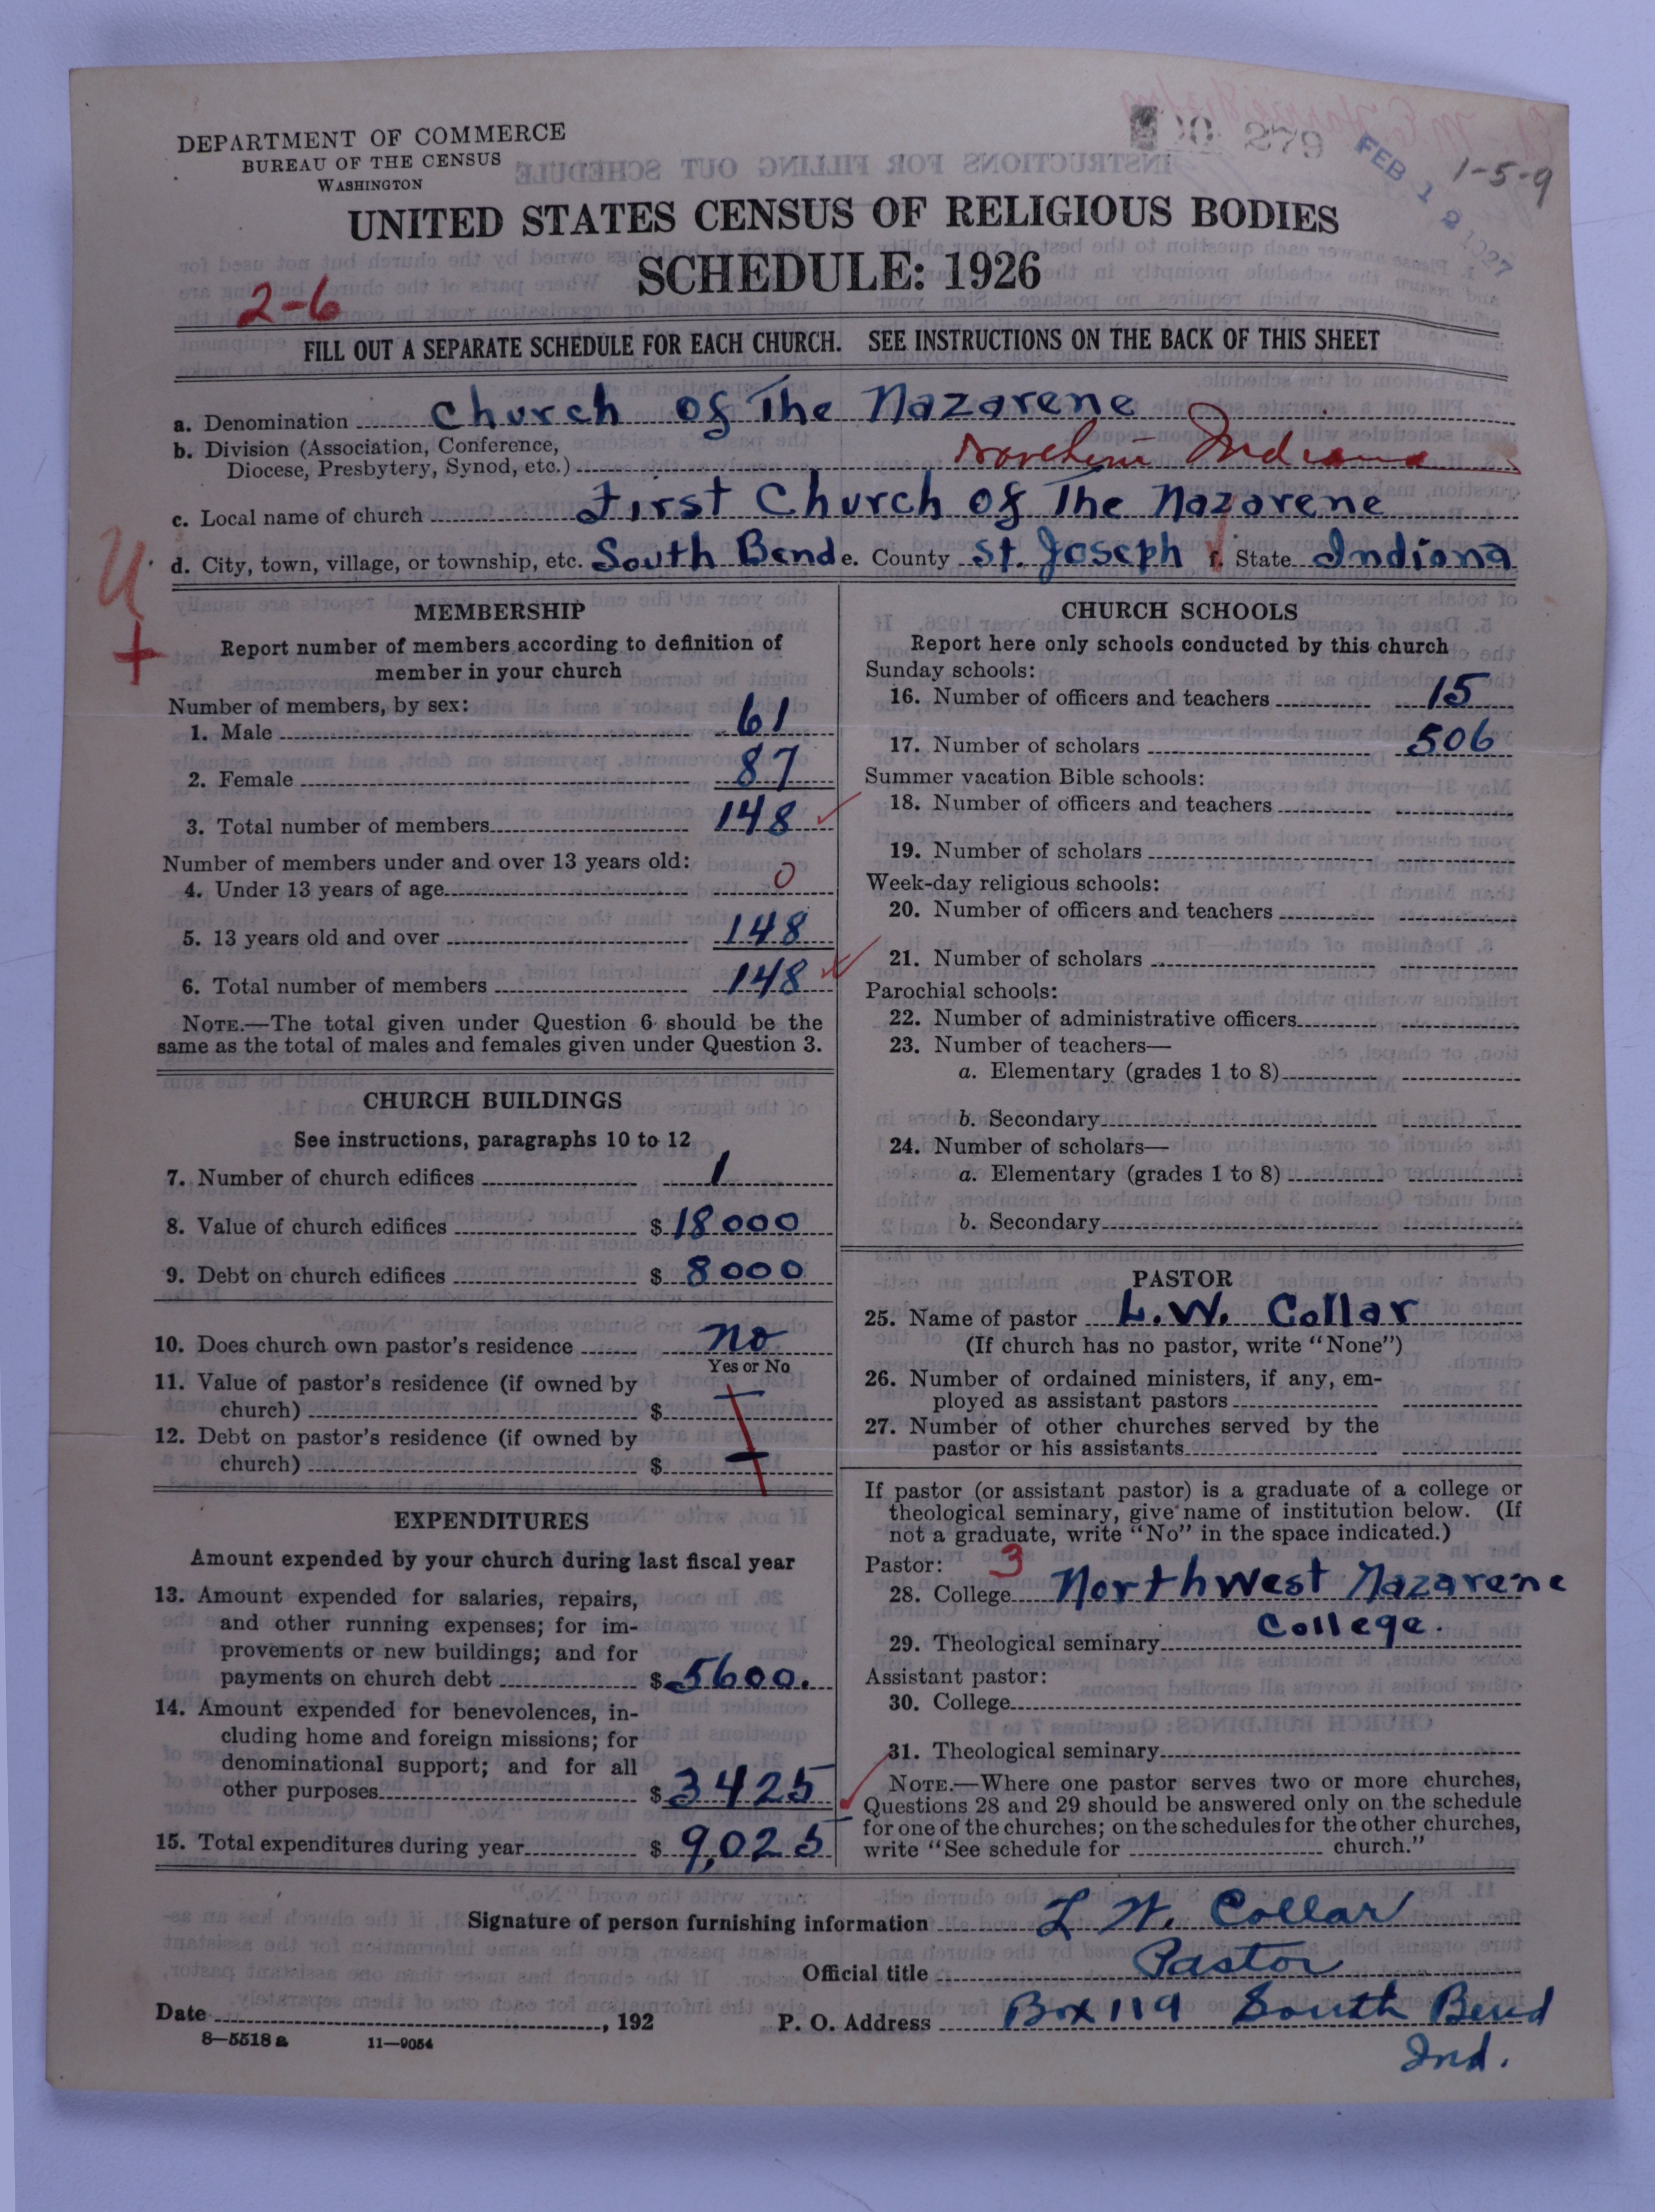 DEPARTMENT OF COMMERCE
BUREAU OF THE CENSUS
WASHINGTON
279
FEB 1 1927
1-5-9
UNITED STATES CENSUS OF RELIGIOUS BODIES
SCHEDULE: 1926
2-6
FILL OUT A SEPARATE SCHEDULE FOR EACH CHURCH. SEE INSTRUCTIONS ON THE BACK OF THIS SHEET
a. Denomination Church of The Nazarene
b. Division (Association, Conference,
Diocese, Presbytery, Synod, etc.) Northern Indiana
c. Local name of church First Church of The Nazarene
d. City, town, village, or township, etc. South Bend e. County St. Joseph f. State Indiana
U
+
MEMBERSHIP
Report number of members according to definition of
member in your church
Number of members, by sex:
1. Male 61
2. Female 87
3. Total number of members 148
Number of members under and over 13 years old:
4. Under 13 years of age 0
5. 13 years old and over 148
6. Total number of members 148
NOTE.—The total given under Question 6 should be the
same as the total of males and females given under Question 3.
CHURCH BUILDINGS
See instructions, paragraphs 10 to 12
7. Number of church edifices 1
8. Value of church edifices $ 18000
9. Debt on church edifices $ 8000
10. Does church own pastor's residence no
Yes or No
11. Value of pastor's residence (if owned by
church) $
12. Debt on pastor's residence (if owned by
church) $
EXPENDITURES
Amount expended by your church during last fiscal year
13. Amount expended for salaries, repairs,
and other running expenses; for im-
provements or new buildings; and for
payments on church debt $ 5600.
14. Amount expended for benevolences, in-
cluding home and foreign missions; for
denominational support; and for all
other purposes $ 3425
15. Total expenditures during year $ 9,025
CHURCH SCHOOLS
Report here only schools conducted by this church
Sunday schools:
16. Number of officers and teachers 15
17. Number of scholars 506
Summer vacation Bible schools:
18. Number of officers and teachers
19. Number of scholars
Week-day religious schools:
20. Number of officers and teachers
21. Number of scholars
Parochial schools:
22. Number of administrative officers
23. Number of teachers—
a. Elementary (grades 1 to 8)
b. Secondary
24. Number of scholars—
a. Elementary (grades 1 to 8)
b. Secondary
PASTOR
25. Name of pastor L. W. Collar
(If church has no pastor, write "None")
26. Number of ordained ministers, if any, em-
ployed as assistant pastors
27. Number of other churches served by the
pastor or his assistants
If pastor (or assistant pastor) is a graduate of a college or
theological seminary, give name of institution below. (If
not a graduate, write "No" in the space indicated.)
Pastor: 3
28. College Northwest Nazarene
College.
29. Theological seminary
Assistant pastor:
30. College
31. Theological seminary
NOTE.—Where one pastor serves two or more churches,
Questions 28 and 29 should be answered only on the schedule
for one of the churches; on the schedules for the other churches,
write "See schedule for church."
Signature of person furnishing information L. W. Collar
Official title Pastor
Date , 192
P. O. Address Box 119 South Bend
Ind.
8-5518 a 11-9054